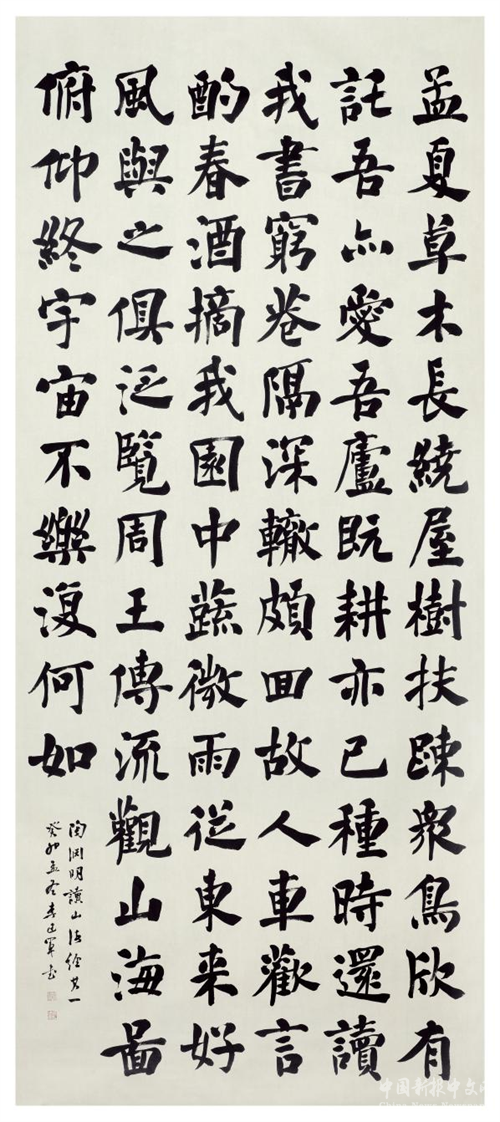 孟夏草木長繞屋樹扶踈衆鳥欣有
託吾亦愛吾廬既耕亦已種時還讀
我書窮巷隔深轍頗回故人車歡言
酌春酒摘我園中蔬微雨從東来好
風與之俱泛覽周王傳流觀山海圖
俯仰終宇宙不樂復何如
陶渊明讀山海經其一
癸卯孟冬李
中国新报中文